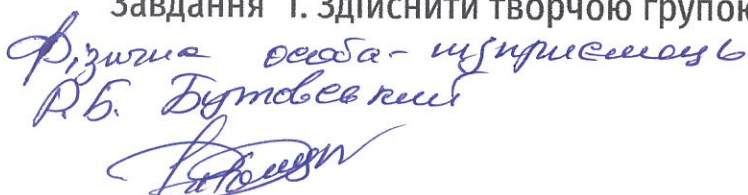 Завдання 1. Здійснити творчою групою
Фізична особа-підприємець
Р.Б. Бутовський